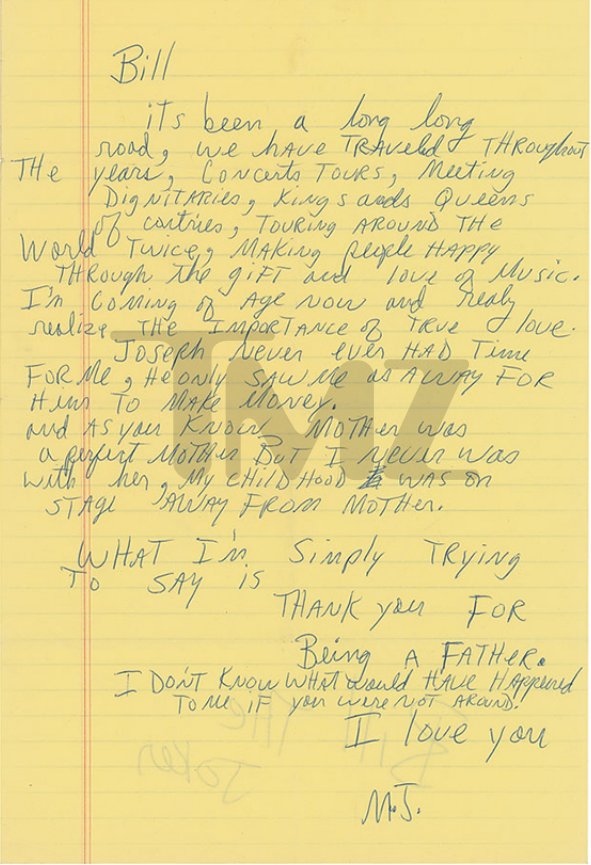 Bill
its been a long long
road, we have TRAveled THROughout
THe years, Concerts TOURS, Meeting
DigNiTARies, Kings ands Queens
of contries, TOURiNg AROUND THe
World Twice, MAKiNg people HAppy
THROugh The giFT and love of Music.
I'm COMiNg of Age NOW and realy
realize THe IMpORTANce of TRUe love.
JOSepH Never ever HAD Time
FOR Me, He only SAW Me as A WAY FOR
Him TO MAKe MoNey.
and AS you KNOW MOTHer was
a perfect MOTHer BuT I Never was
with her, My CHiLDHOOD was on
STAge AWAY FROM MOTHer.
WHAT I'm Simply TRyiNg
TO SAY iS
THANK you FOR
Being A FATHeR.
I DON'T KNOW WHAT would HAve HAppeNed
TO Me iF you were NOT AROUND!
I love you
M.J.
TMZ
BiLL THe
JOKeR